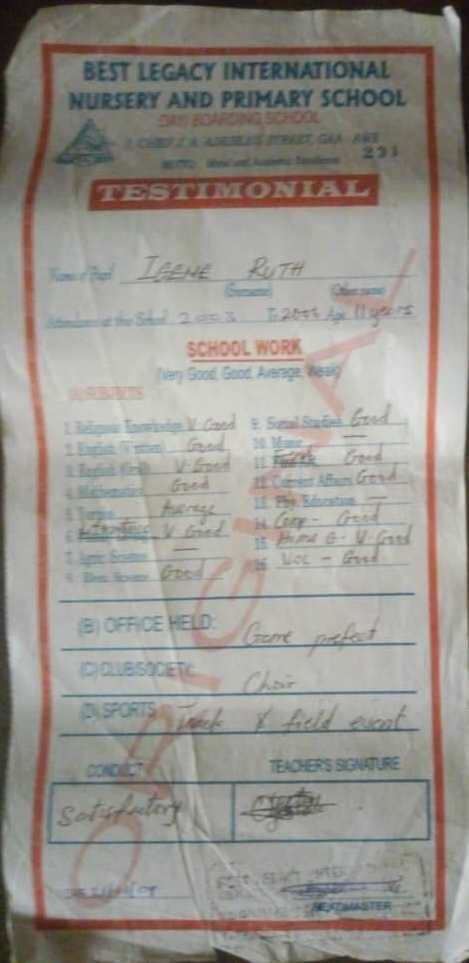 BEST LEGACY INTERNATIONAL
NURSERY AND PRIMARY SCHOOL
DAY/BOARDING SCHOOL
STREET,
MOTTO: Moral and Academic Excellence
231
TESTIMONIAL
Name of Pupil IGENE RUTH
(Surname) (Other name)
Attendance at this School 2003 To 2008 Age 11 years
SCHOOL WORK
(Very Good, Good, Average, Weak)
(A) SUBJECTS
1. Religious Knowledge V. Good
2. English (Written) Good
3. English (Oral) V. Good
4. Mathematics Good
5. Average
6. V Good
7. Agric Science —
8. Elem. Science Good
9. Social Studies Good
10. Music —
11. Good
12. Current Affairs Good
13. Phy. Education —
14. Comp - Good
15. Home E - V. Good
16. Voc - Good
ORIGINAL
(B) OFFICE HELD: Game prefect
(C) CLUB/SOCIETY: Choir
(D) SPORTS Track & field event
CONDUCT
TEACHER'S SIGNATURE
Satisfactory
HEADMASTER